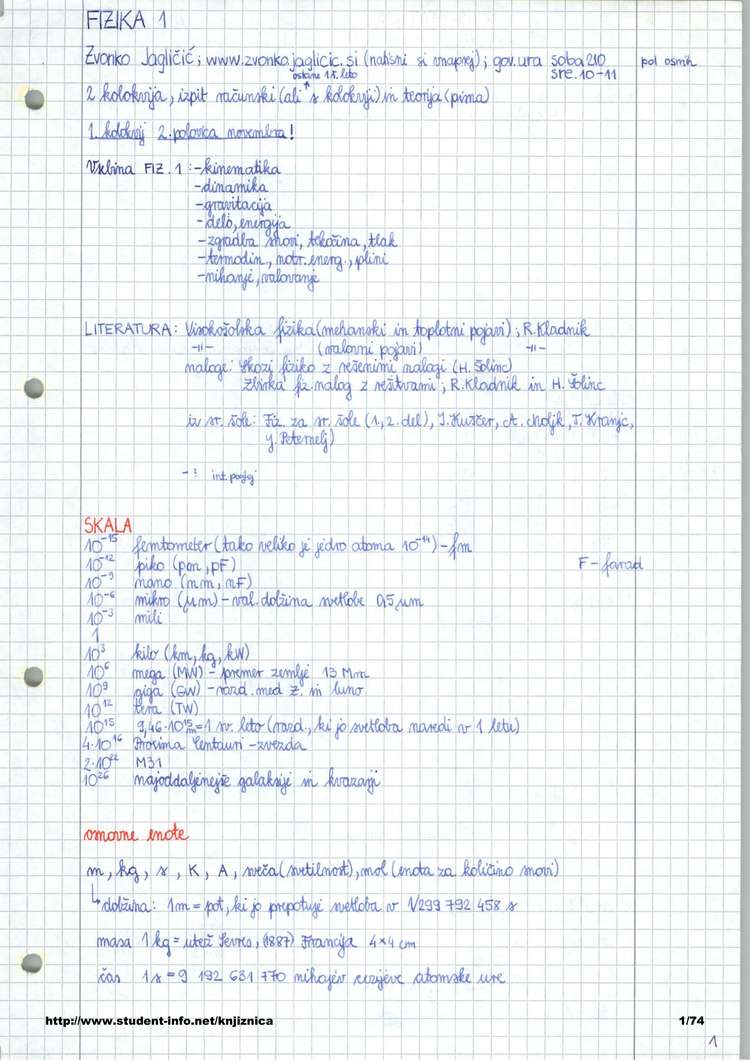 FIZIKA 1
Zvonko Jagličić; www.zvonko.jaglicic.si (natisni si vnaprej); gov.ura soba 210 pol osmih
ostane 1 š. leto sre. 10-11
2 kolokvija, izpit računski (ali s kolokviji) in teorija (pisna)
1. kolokvij 2. polovica novembra!
Vsebina FIZ. 1: -kinematika
-dinamika
-gravitacija
-delo, energija
-zgradba snovi, tekočina, tlak
-termodin., notr. energ., plini
-nihanje, valovanje
LITERATURA: Visokošolska fizika (mehanski in toplotni pojavi); R. Kladnik
-11- (valovni pojavi) -11-
naloge: Skozi fiziko z rešenimi nalogi (H. Šolinc)
Zbirka fiz. nalog z rešitvami; R. Kladnik in H. Šolinc
iz sr. šole: Fiz. za sr. šole (1, 2. del), I. Kuščer, A. Moljk, T. Kranjc,
J. Peternelj)
-
SKALA
10⁻¹⁵ femtometer (tako veliko je jedro atoma 10⁻¹⁴) - fm
10⁻¹² piko (pm, pF) F - farad
10⁻⁹ nano (nm, nF)
10⁻⁶ mikro (μm) - val. dolžina svetlobe 0,5 μm
10⁻³ mili
1
10³ kilo (km, kg, kW)
10⁶ mega (MW) - premer zemlje 13 Mm
10⁹ giga (GW) - razd. med Z. in luno
10¹² tera (TW)
10¹⁵ 9,46·10¹⁵m = 1 sv. leto (razd., ki jo svetloba naredi v 1 letu)
4·10¹⁶ Proxima Centauri - zvezda
2·10²² M31
10²⁶ najoddaljenejše galaksije in kvazarji
osnovne enote
m, kg, s, K, A, sveča (svetilnost), mol (enota za količino snovi)
↳ dolžina: 1m = pot, ki jo prepotuje svetloba v 1/299 792 458 s
masa 1 kg = utež Sevres, (1887) Francija 4×4 cm
čas 1s = 9 192 631 770 nihajev cezijeve atomske ure
http://www.student-info.net/knjiznica 1/74
1